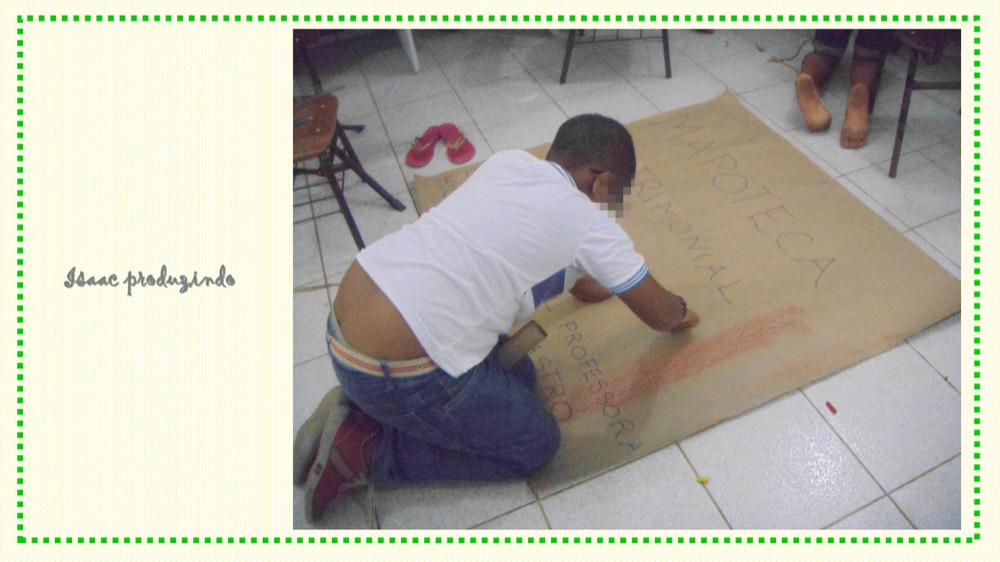 Isaac produzindo
MAPOTECA
TRIMONIAL
PROFESSORA
STRO